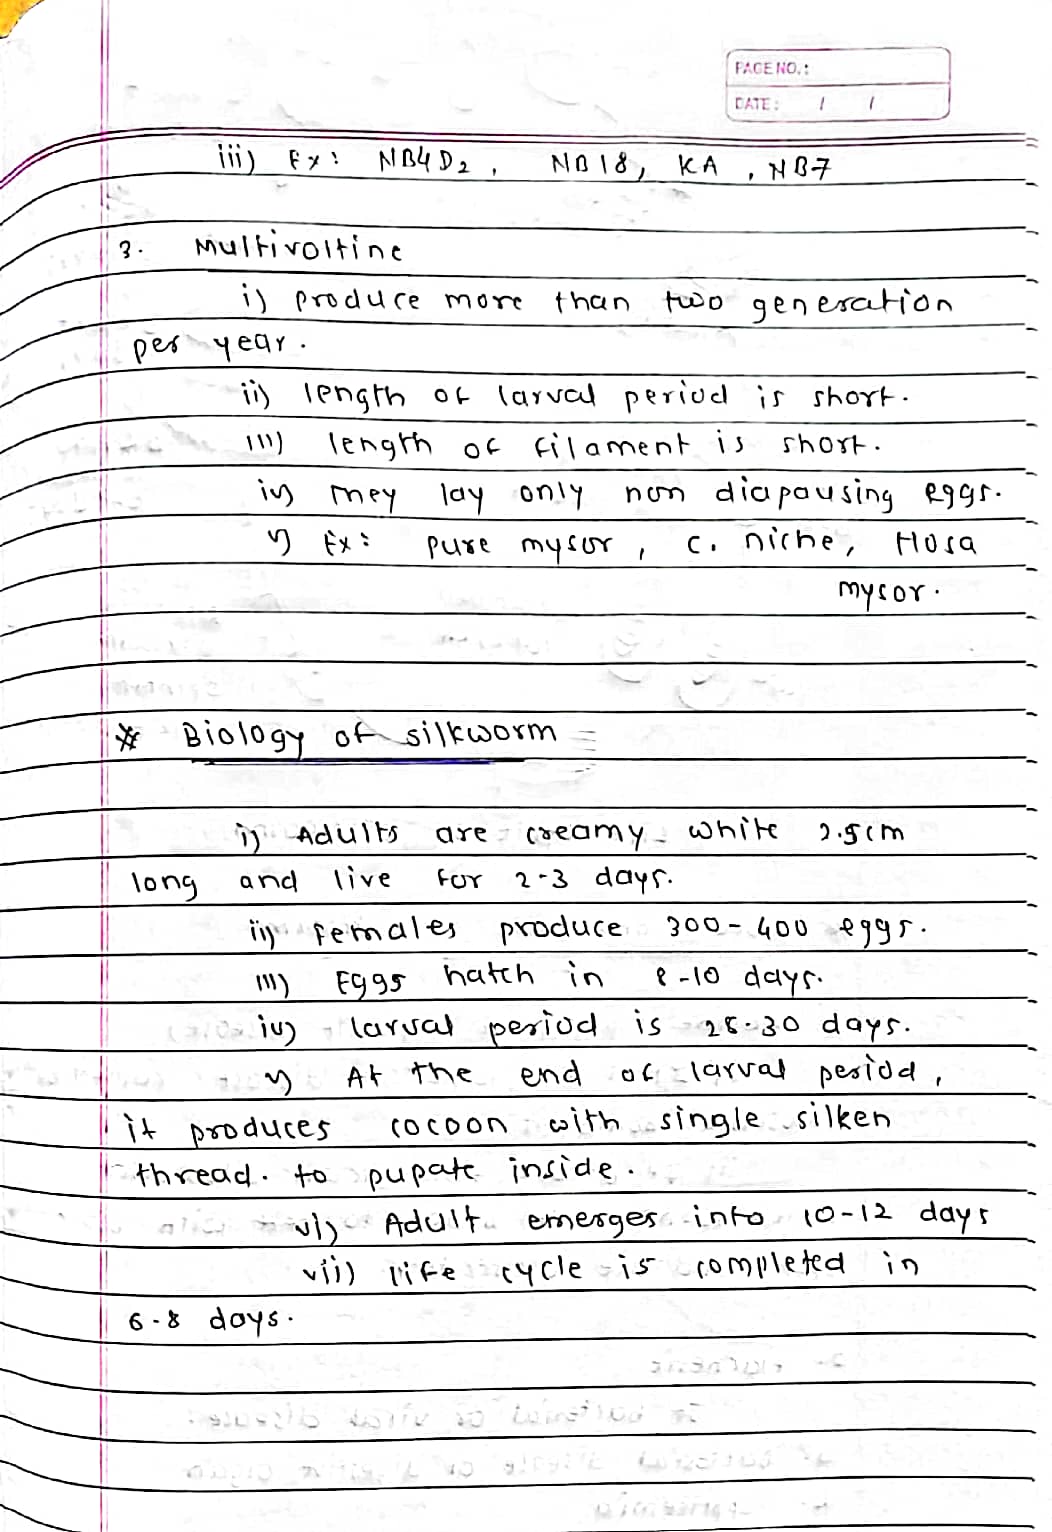 PAGE NO.:
DATE: / /
iii) Ex: NB4D2, NB18, KA, NB7
3. Multivoltine
i) produce more than two generation
per year.
ii) length of larval period is short.
iii) length of filament is short.
iv) They lay only non diapausing eggs.
v) Ex: pure mysor, C. niche, Hosa
mysor.
* Biology of silkworm =
i) Adults are creamy white 2.5cm
long and live for 2-3 days.
ii) females produce 300-400 eggs.
iii) Eggs hatch in 8-10 days.
iv) larval period is 28-30 days.
v) At the end of larval period,
it produces cocoon with single silken
thread. to pupate inside.
vi) Adult emerges into 10-12 days
vii) life cycle is completed in
6-8 days.